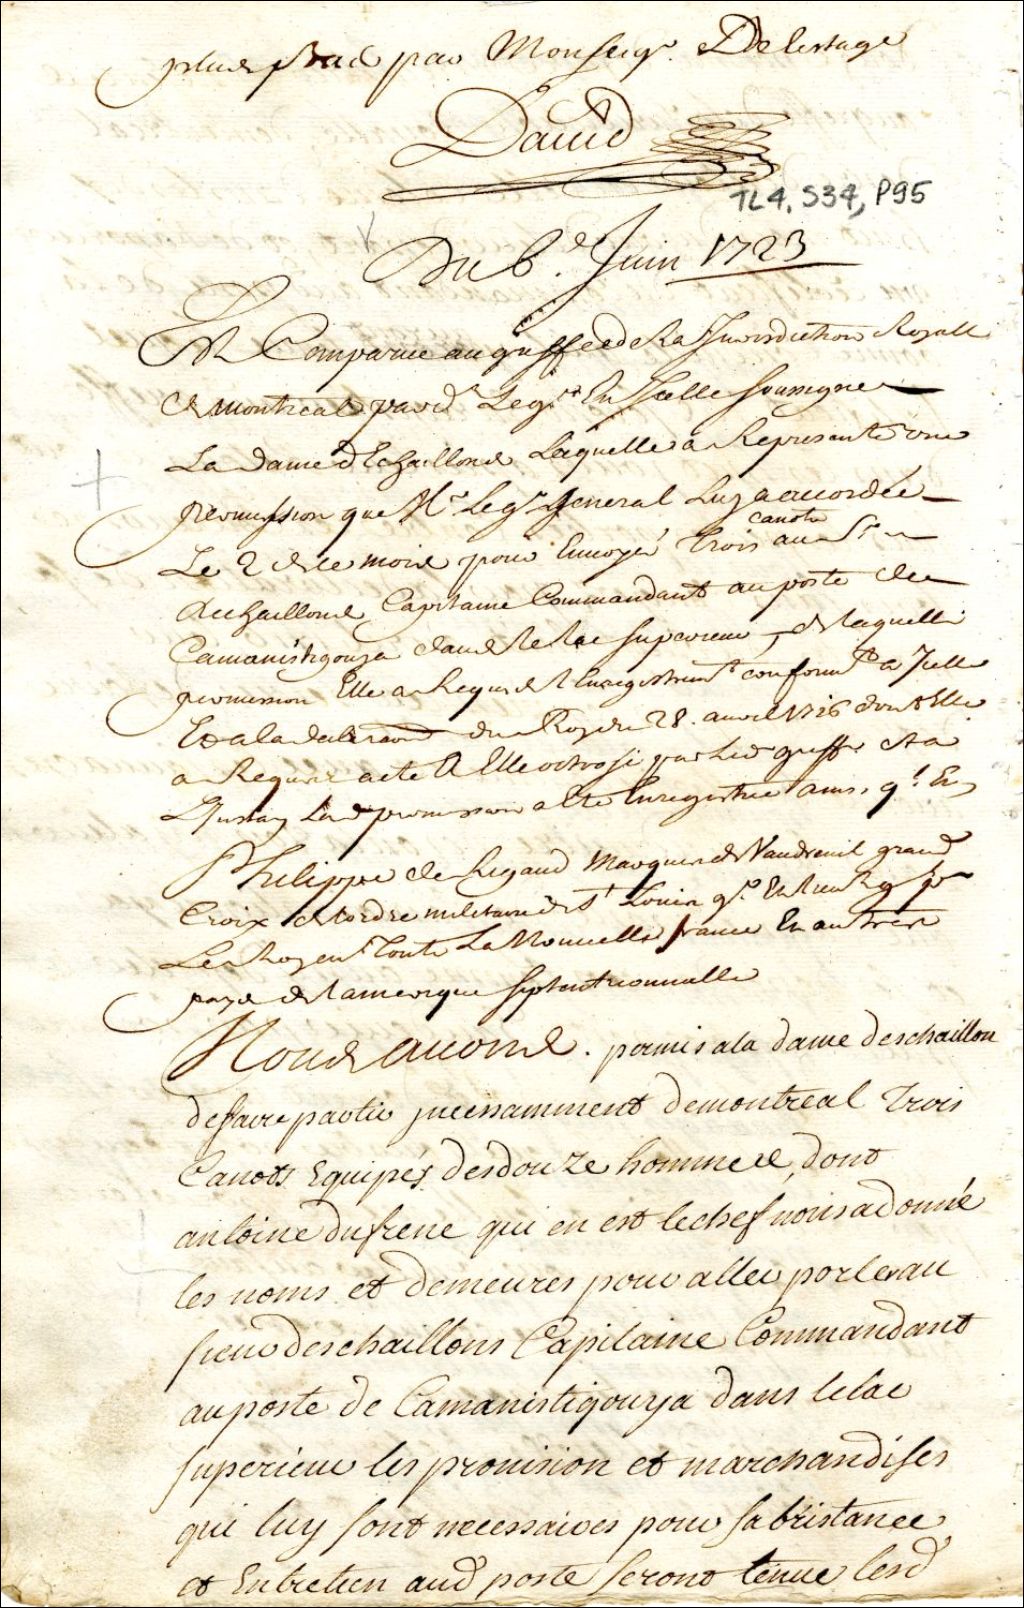 par Monseigr. Delestage
David
TL4, S34, P95
Du 6e. Juin 1723
Est Comparue au greffe de la Jurisdiction Royalle
de montreal pard. Le gr. En Icelle soussigne
La dame dEchaillons Laquelle a Representé une
permission que Mr. Le gr. general Luy a accordée
Le 2 de ce mois pour Envoyer trois canots au Sr.
dechaillons Capitaine Commandant au poste de
Camanistigouya dans le lac superieur, de laquelle
permission Elle a Requis l Enregistremt. conformt. a Icelle
Et a la declaraon. du Roy du 28. avril 1716 dont Elle
a Requis acte A Elle octroyé par led greffr et a
Linstant Lad permission a été Enregistrée ainsi q. E
Philippe de Rigaud Marquis de Vaudreuil grand
Croix de lordre militaire de St. Louis gr. Et Lieut g pr
Le Roy en toute La Nouvelle france En autres
pays de lamerique septentrionnalle
Nous avons. permis a la dame deschaillon
de faire partir incessamment de montreal trois
Canots Equipés de douze hommes, dont
antoine dufrene qui en est le chef nous a donné
les noms et demeures pour aller porter au
sieur deschaillons Capitaine Commandant
au poste de Camanistigouya dans le lac
superieur les provision et marchandises
qui luy sont necessaires pour sa bsistance
et Entretien aud poste seront tenue lesd